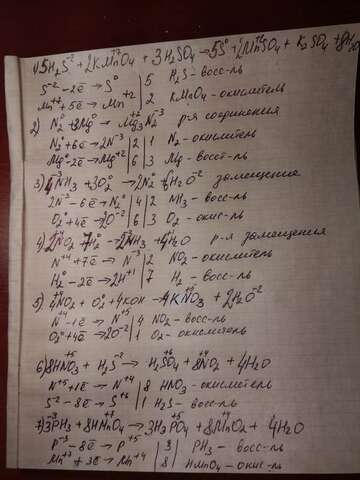 1) 5H₂S⁻² + 2KMnO₄⁺⁷ + 3H₂SO₄ → 5S⁰ + 2Mn⁺²SO₄ + K₂SO₄ + 8H₂O
S⁻² - 2ē → S⁰ | 5 H₂S - восс-ль
Mn⁺⁷ + 5ē → Mn⁺² | 2 KMnO₄ - окислитель
2) N₂⁰ + 3Mg⁰ → Mg₃⁺²N₂⁻³ р-я соединения
N₂⁰ + 6ē → 2N⁻³ | 2 | 1 N₂ - окислитель
Mg⁰ - 2ē → Mg⁺² | 6 | 3 Mg - восст-ль
3) 4N⁻³H₃ + 3O₂⁰ → 2N₂⁰ + 6H₂O⁻² замещения
2N⁻³ - 6ē → N₂⁰ | 4 | 2 NH₃ - восс-ль
O₂⁰ + 4ē → 2O⁻² | 6 | 3 O₂ - окис-ль
4) 2N⁺⁴O₂ 7H₂⁰ → 2N⁻³H₃ + 4H₂O р-я замещения
N⁺⁴ + 7ē → N⁻³ | 2 NO₂ - окислитель
H₂⁰ - 2ē → 2H⁺¹ | 7 H₂ - восс-ль
5) 4N⁺⁴O₂ + O₂⁰ + 4KOH → 4KN⁺⁵O₃ + 2H₂O⁻²
N⁺⁴ - 1ē → N⁺⁵ | 4 NO₂ - восс-ль
O₂⁰ + 4ē → 2O⁻² | 1 O₂ - окислитель
6) 8HN⁺⁵O₃ + H₂S⁻² → H₂S⁺⁶O₄ + 8N⁺⁴O₂ + 4H₂O
N⁺⁵ + 1ē → N⁺⁴ | 8 HNO₃ - окислитель
S⁻² - 8ē → S⁺⁶ | 1 H₂S - восс-ль
7) 3P⁻³H₃ + 8HMn⁺⁷O₄ → 3H₃P⁺⁵O₄ + 8Mn⁺⁴O₂ + 4H₂O
P⁻³ - 8ē → P⁺⁵ | 3 | PH₃ - восс-ль
Mn⁺⁷ + 3ē → Mn⁺⁴ | 8 | HMnO₄ - окис-ль